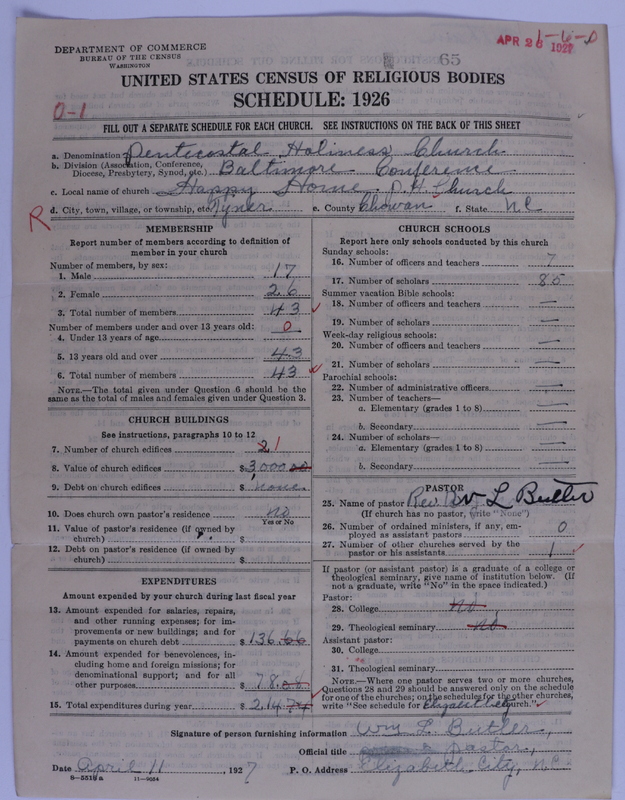 DEPARTMENT OF COMMERCE
BUREAU OF THE CENSUS
WASHINGTON
APR 26 1927
1-6-0
65
UNITED STATES CENSUS OF RELIGIOUS BODIES
SCHEDULE: 1926
0-1
FILL OUT A SEPARATE SCHEDULE FOR EACH CHURCH. SEE INSTRUCTIONS ON THE BACK OF THIS SHEET
a. Denomination Pentecostal Holiness Church
b. Division (Association, Conference, Diocese, Presbytery, Synod, etc.) Baltimore Conference
c. Local name of church Happy Home P. H. Church
R
d. City, town, village, or township, etc. Tyner e. County Chowan f. State N C
MEMBERSHIP
Report number of members according to definition of
member in your church
Number of members, by sex:
1. Male 17
2. Female 26
3. Total number of members 43
Number of members under and over 13 years old:
4. Under 13 years of age 0
5. 13 years old and over 43
6. Total number of members 43
NOTE.—The total given under Question 6 should be
same as the total of males and females given under Question 3.
CHURCH BUILDINGS
See instructions, paragraphs 10 to 12
7. Number of church edifices 2 1
8. Value of church edifices $ 3,000 00
9. Debt on church edifices $ none
10. Does church own pastor's residence? no
Yes or No
11. Value of pastor's residence (if owned by
church) $
12. Debt on pastor's residence (if owned by
church) $
EXPENDITURES
Amount expended by your church during last fiscal year
13. Amount expended for salaries, repairs,
and other running expenses; for im-
provements or new buildings; and for
payments on church debt $ 136.66
14. Amount expended for benevolences, in-
cluding home and foreign missions; for
denominational support; and for all
other purposes $ 78.08
15. Total expenditures during year $ 214.74
CHURCH SCHOOLS
Report here only schools conducted by this church
Sunday schools:
16. Number of officers and teachers 7
17. Number of scholars 85
Summer vacation Bible schools:
18. Number of officers and teachers —
19. Number of scholars —
Week-day religious schools:
20. Number of officers and teachers —
21. Number of scholars —
Parochial schools:
22. Number of administrative officers —
23. Number of teachers—
a. Elementary (grades 1 to 8) —
b. Secondary —
24. Number of scholars—
a. Elementary (grades 1 to 8) —
b. Secondary —
PASTOR
25. Name of pastor Rev. L Butler
(If church has no pastor, write "None")
26. Number of ordained ministers, if any, em-
ployed as assistant pastors 0
27. Number of other churches served by the
pastor or his assistants 1
If pastor (or assistant pastor) is a graduate of a college or
theological seminary, give name of institution below. (If
not a graduate, write "No" in the space indicated.)
Pastor:
28. College no
29. Theological seminary no
Assistant pastor:
30. College
31. Theological seminary
NOTE.—Where one pastor serves two or more churches,
Questions 28 and 29 should be answered only on the schedule
for one of the churches; on the schedules for the other churches,
write "See schedule for Elizabeth City church."
Signature of person furnishing information Wm L. Butler,
Official title pastor,
Date April 11, 1927 P. O. Address Elizabeth City, N.C.
8-5518a 11-9054